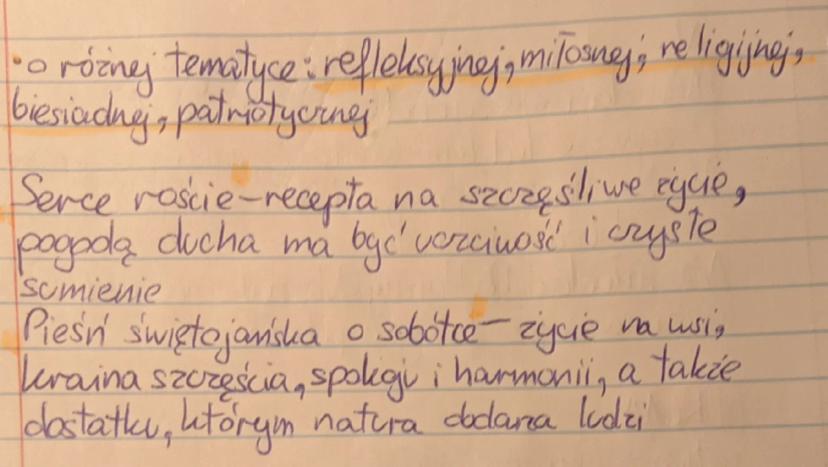 • o różnej tematyce: refleksyjnej, miłosnej, religijnej,
biesiadnej, patriotycznej
Serce roście - recepta na szczęśliwe życie,
pogodą ducha ma być uczciwość i czyste
sumienie
Pieśń świętojańska o sobótce - życie na wsi,
kraina szczęścia, spokoju i harmonii, a także
dostatku, którym natura obdarza ludzi